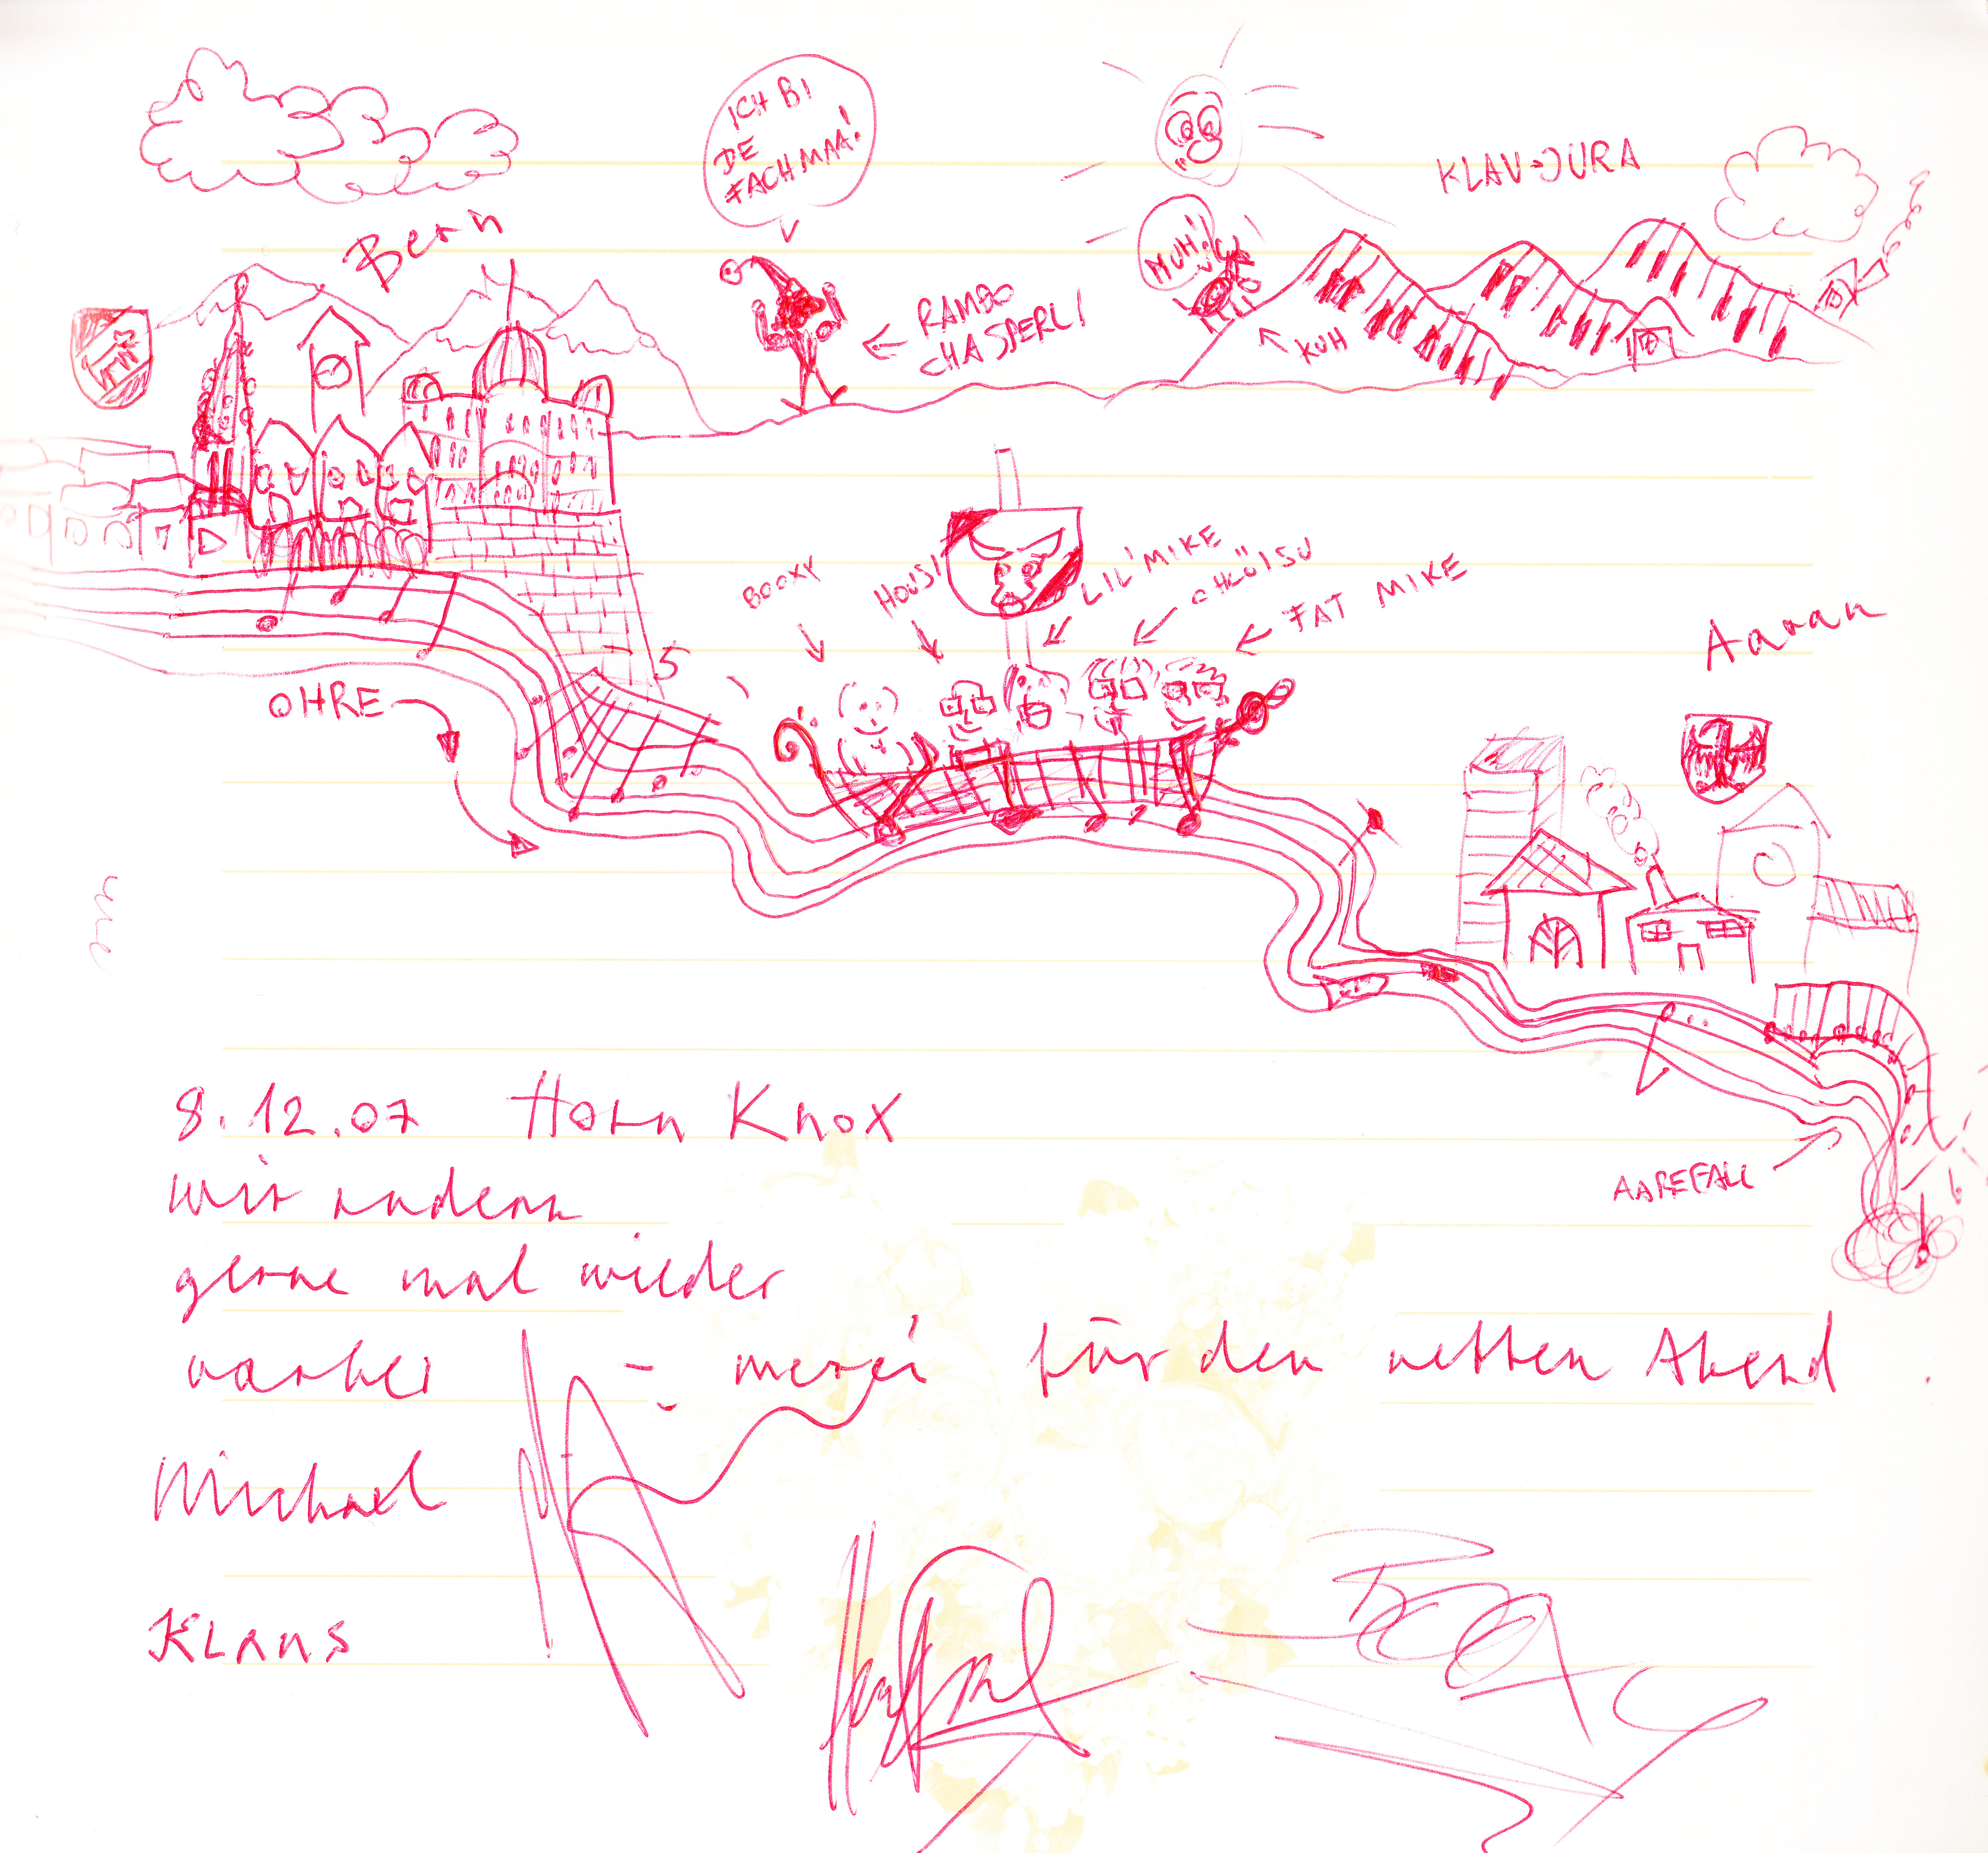 ICH BI
DE
FACHMAA!
KLAV-JURA
Bern
MUH!
RAMBO
CHASPERLI
KUH
BOOXY
HOUSI
LIL' MIKE
CHLÖISU
FAT MIKE
Aarau
5
OHRE
AAREFALL
8.12.07 Horn Knox
wir rudern
gerne mal wieder
vorbei – merci für den netten Abend.
Michael
KLAUS